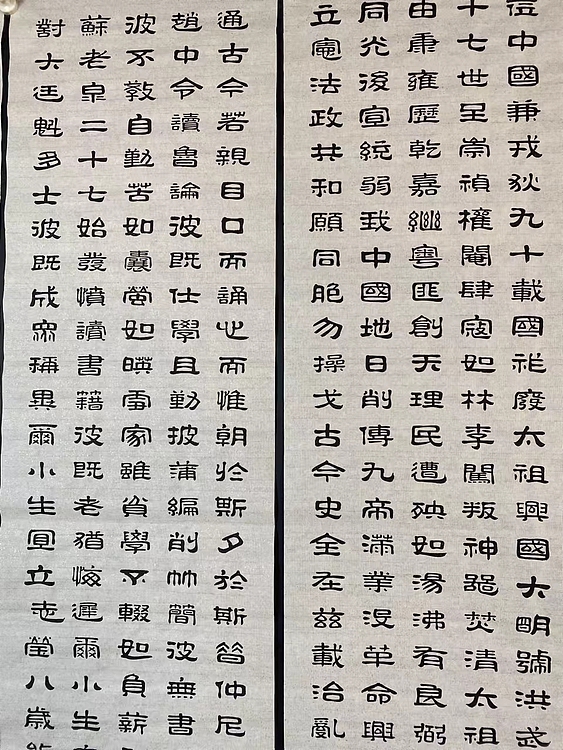 莅中國兼戎狄九十載國祚廢太祖興國大明號洪武
十七世至崇禎權閹肆寇如林李闖叛神器焚清太祖
由康雍歷乾嘉粵匪創天理民遭殃如湯沸有良弼
同光後宣統弱我中國地日削傳九帝滿業沒革命興
立憲法政共和願同胞勿操戈古今史全在茲載治亂
通古今若親目口而誦心而惟朝於斯夕於斯昔仲尼
趙中令讀魯論彼既仕學且勤披蒲編削竹簡彼無書
彼不教自勤苦如囊螢如映雪家雖貧學不輟如負薪
蘇老泉二十七始發憤讀書籍彼既老猶悔遲爾小生
對大廷魁多士彼既成眾稱異爾小生宜立志瑩八歲